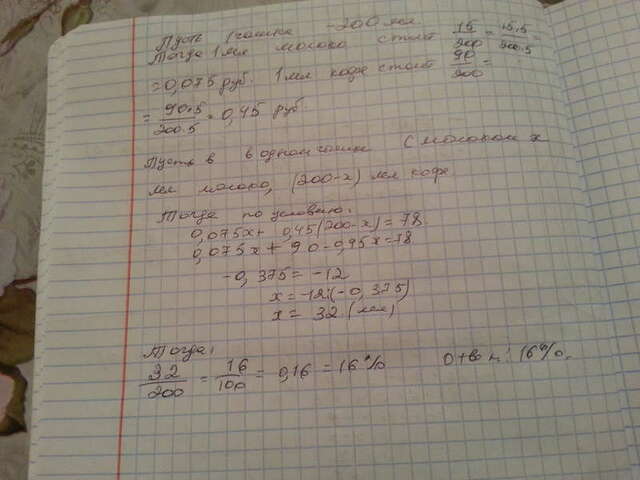 Пусть 1 чашка - 200 мл
Тогда 1 мл молоко стоит 15/200 = 15·5/200·5 =
= 0,075 руб. 1 мл кофе стоит 90/200 =
= 90·5/200·5 = 0,45 руб
Пусть в в одном чашке с молоком x
мл молоко, (200-x) мл кофе
Тогда по условию:
0,075x + 0,45(200-x) = 78
0,075x + 90 - 0,45x = 78
-0,375 = -12
x = -12:(-0,375)
x = 32 (мл)
Тогда:
32/200 = 16/100 = 0,16 = 16%
Ответ: 16%.